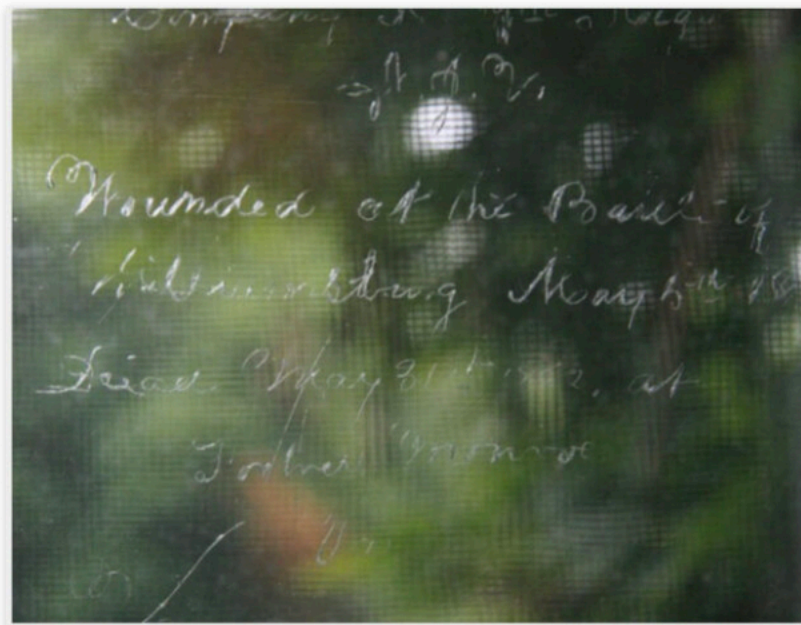 Company
N. Y. V.
Wounded at the Battle of
Williamsburg May 5th 18
Died May 31st 1862, at
Fortress Monroe